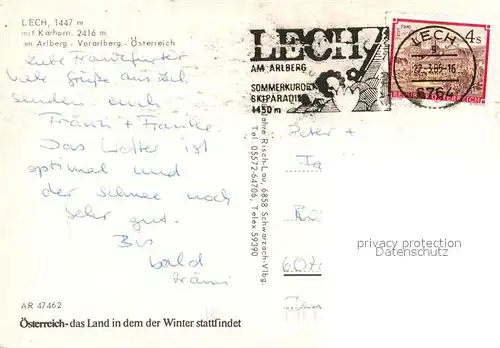 LECH, 1447 m
mit Karhorn, 2416 m
am Arlberg - Vorarlberg - Österreich
Liebe Frankfurter
viele Grüße aus Lech
senden euch
Fränzi + Franke.
Das Wetter ist
optimal und
der Schnee noch
sehr gut.
Bis
bald
Fränzi
AR 47462
Österreich - das Land in dem der Winter stattfindet
LECH
AM ARLBERG
SOMMERKURORT
SKIPARADIES
1450 m
LECH
22.3.85-16
6764
4s
REPUBLIK ÖSTERREICH
Risch-Lau, 6858 Schwarzach-Vlbg.
Tel. 05572-64706, Telex 59390
Peter +
privacy protection
Datenschutz